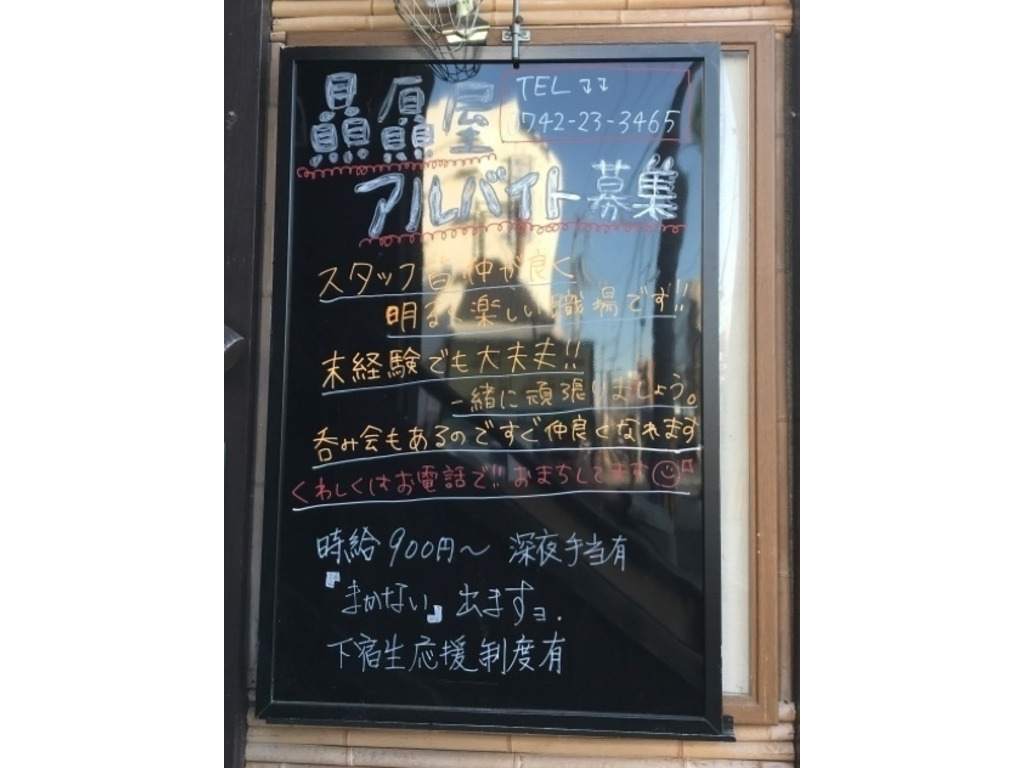 贔屭屋
TEL ココ
0742-23-3465
アルバイト募集
スタッフ皆仲が良く
明るく楽しい職場です!!
未経験でも大丈夫!!
一緒に頑張りましょう。
呑み会もあるのですぐ仲良くなれます
くわしくはお電話で!! おまちしてます
時給900円～ 深夜手当有
『まかない』出ますョ.
下宿生応援制度有